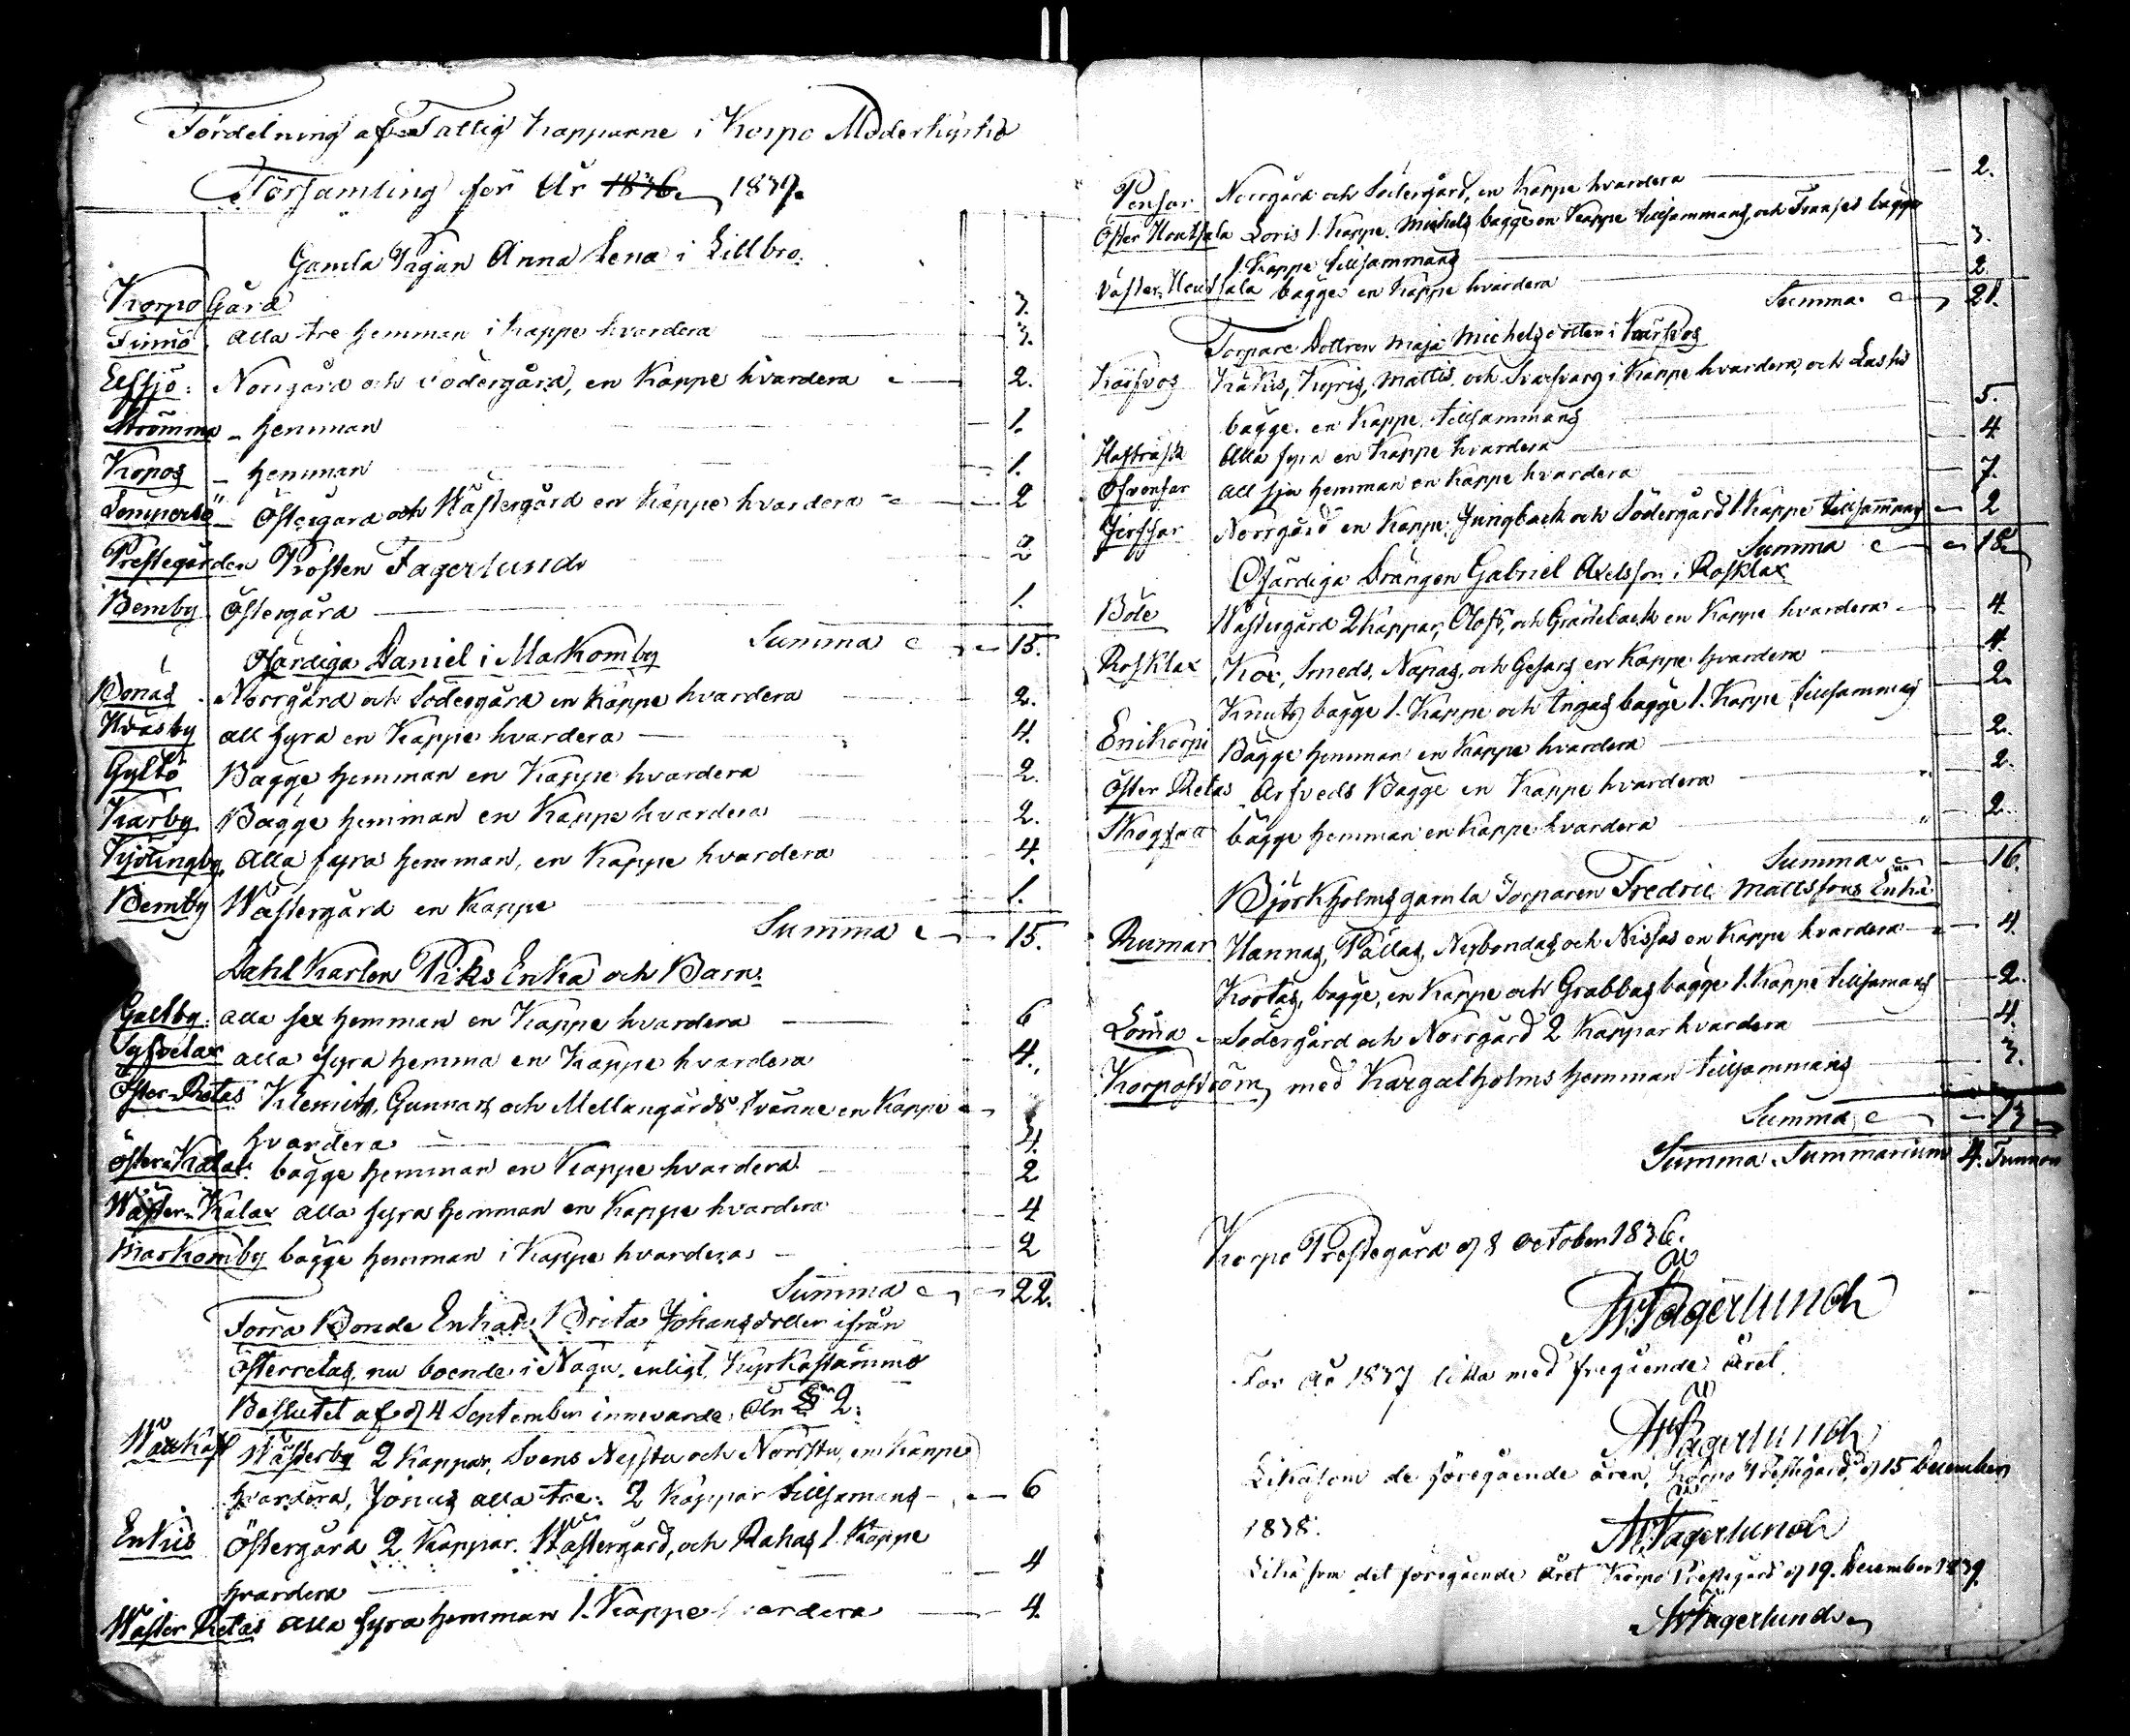 Fördelning af Fattig Kapparne i Korpo Moderkyrko
Församling för År 1836. 1837.
Gamla Pigan Anna Lena i Lillbro.
Korpo Gård 3.
Finnö alla tre hemman i Kappe hvardera 3.
Elfsjö: Norrgård och Södergård, en Kappe hvardera 2.
Strömma - hemman 1.
Kopos - hemman 1.
Lempersö Östergård och Wästergård en Kappe hvardera 2
Prestegården Prosten Fagerlund 2
Bemby Östergård 1.
Summa 15.
Ofärdiga Daniel i Markomby
Bonäs Norrgård och Södergård en Kappe hvardera 2.
Kväsby all fyra en Kappe hvardera 4.
Gyltö Bagge hemman en Kappe hvardera 2.
Kårby Bagge hemman en Kappe hvardera 2.
Kyrlingby Alla fyra hemman, en Kappe hvardera 4.
Bemby Wästergård en Kappe 1.
Summa 15.
Dahl Karlen Piks Enka och Barn.
Galtby: alla sex hemman en Kappe hvardera 6
Syfvelax alla fyra hemma en Kappe hvardera 4.
Öster-Retas Klemits, Gunnars och Mellangårds tvänne en Kappe
hvardera 4.
Öster-Kalax bagge hemman en Kappe hvardera 2
Wäster-Kalax alla fyra hemman en Kappe hvardera 4
Markomby bagge hemman i Kappe hvardera 2
Summa 22.
Förra Bonde Enkan Brita Johansdotter ifrån
Österretas, nu boende i Nagu, enligt Kyrkostämmo
Beslutet af d 4 September innevarde År § 2.
Wattkast Wästerby 2 Kappar, Svens Nystu och Norrstu, en Kappe
hvardera, Jonus alla tre: 2 Kappar tillsamans 6
Enkis Östergård 2 Kappar. Wästergård, och Rahas 1. Kappe
hvardera 4
Wäster Retas alla fyra hemman 1. Kappe hvardera 4.
Pensar Norrgård och Södergård, en Kappe hvardera 2.
Öster Houtsala Loris 1. Kappe. Michels bagge en Kappe tillsammans, och Fransas bagge
1. Kappe tillsammans 3.
Väster-Houtsala bagge en Kappe hvardera 2
Summa 21.
Torpare Dottren Maja Michelsdotter i Kårfvos
Kårfvos Käkus, Kyris, Mattis, och Svarfvars i Kappe hvardera, och Laskis
bagge en Kappe tillsammans 5.
Hafträsk Alla fyra en Kappe hvardera 4
Ofvensar all sju hemman en Kappe hvardera 7.
Jerfsor Norrgård en Kappe, Jungback och Södergård 1 Kappe tillsammans 2
Summa 18
Ofärdiga Drängen Gabriel Axelsson i Rosklax
Böle Wästergård 2 Kappar, Olofs, och Gräneback en Kappe hvardera 4.
Rosklax Kox, Smeds, Napas, och Gesars en Kappe hvardera 4.
Knuts bagge 1. Kappe och Ingas bagge 1. Kappe tillsammans 2
Enikorpi Bagge hemman en Kappe hvardera 2.
Öster Retas Arfveds Bagge en Kappe hvardera 2.
Skogsatt bagge hemman en Kappe hvardera 2.
Summa 16.
Björkholms gamla Torparen Fredric Mattssons Enka
Rumar Hannas, Pällas, Nybondas, och Nissas en Kappe hvardera 4.
Kortas, bagge, en Kappe och Grabbas bagge 1. Kappe tillsamans 2.
Loma Södergård och Norrgård 2 Kappar hvardera 4.
Korpoström med Kargalholms hemman tillsammans 3.
Summa 13
Summa Summarium 4. Tunnor
Korpo Prestegård d 8 October 1836.
A W Fagerlund
För År 1837 lika med fregående Året.
A W Fagerlund
Likasom de föregående åren, Korpo Prestegård, d 15 December
1838.
A W Fagerlund
Likasom det föregående Året Korpo Prestegård d 19. December 1839.
A W Fagerlund